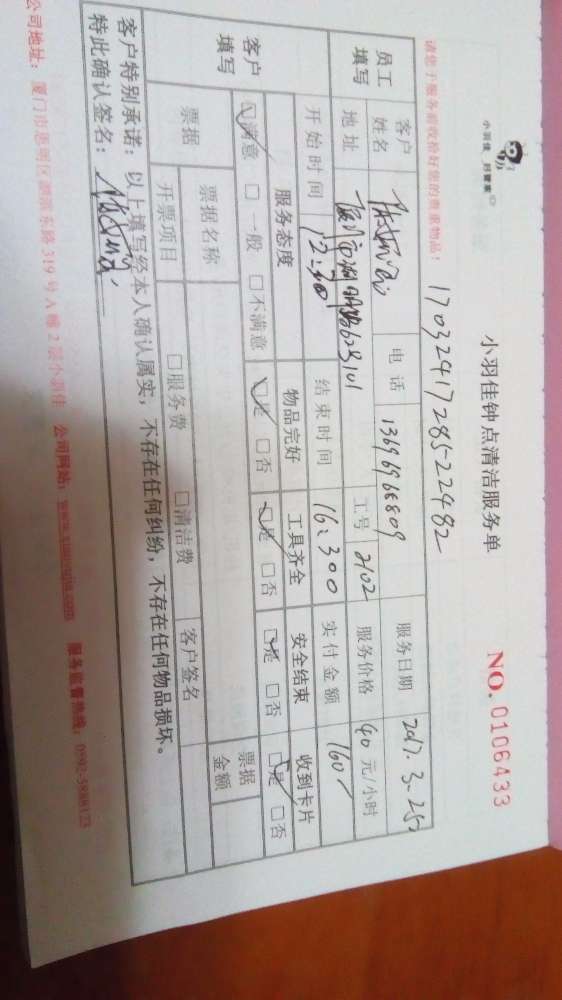 小羽佳 好管家
小羽佳钟点清洁服务单
NO. 0106433
1703241728522482
请您于服务前收检好您的贵重物品！
员工填写
客户姓名
电话 13696968809
服务日期 2017.3.25
地址
工号 2102
服务价格 40 元/小时
开始时间 12:30
结束时间 16:300
实付金额 160
客户填写
服务态度 物品完好 工具齐全 安全结束 收到卡片
☑满意 □一般 □不满意 ☑是 □否 ☑是 □否 ☑是 □否 ☑是 □否
票据
票据名称
客户签名
票据金额
开票项目 □服务费 □清洁费
客户特别承诺：以上填写经本人确认属实，不存在任何纠纷，不存在任何物品损坏。
特此确认签名：
公司地址：厦门市思明区湖滨东路 319 号 A 幢 2 层小羽佳 公司网站：www.xiaoyujia.com 服务监督热线：0592-5888123